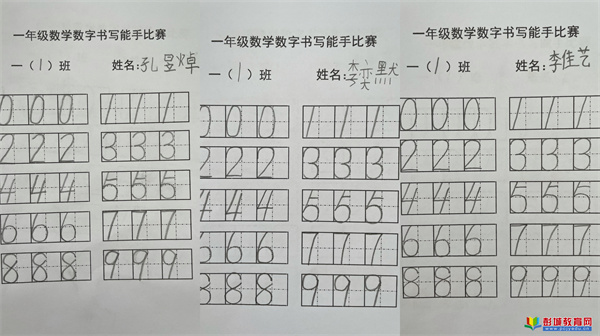 一年级数学数字书写能手比赛
一（1）班 姓名：孔昱焯
0 0 0 1 1 1
2 2 2 3 3 3
4 4 4 5 5 5
6 6 6 7 7 7
8 8 8 9 9 9
一年级数学数字书写能手比赛
一（1）班 姓名：李奕默
0 0 0 1 1 1
2 2 2 3 3 3
4 4 4 5 5 5
6 6 6 7 7 7
8 8 8 9 9 9
一年级数学数字书写能手比赛
一（1）班 姓名：李佳艺
0 0 0 1 1 1
2 2 2 3 3 3
4 4 4 5 5 5
6 6 6 7 7 7
8 8 8 9 9 9
彭城教育网